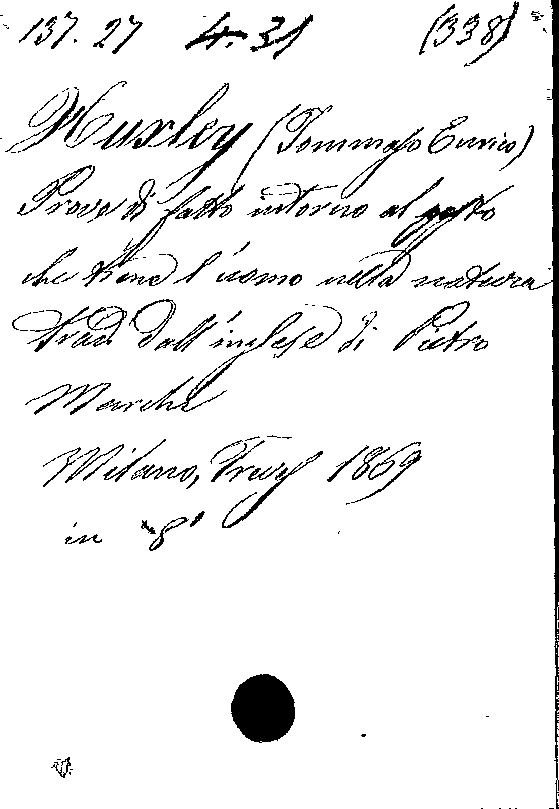 137. 27 4. 31 (338)
Huxley (Tommaso Enrico)
Prove di fatto intorno al posto
che tiene l'uomo nella natura
trad. dall'inglese di Pietro
Marchi
Milano, Treves 1869
in 8°